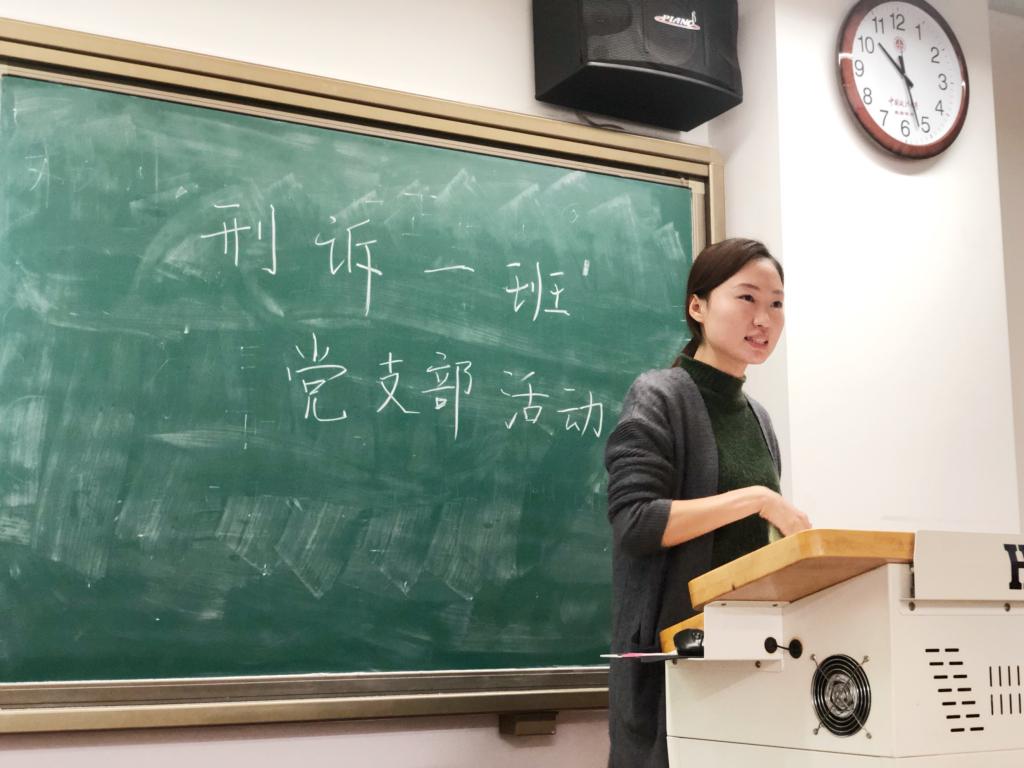 刑诉一班
党支部活动
PIANO
12
1
2
3
4
5
6
7
8
9
10
11
H